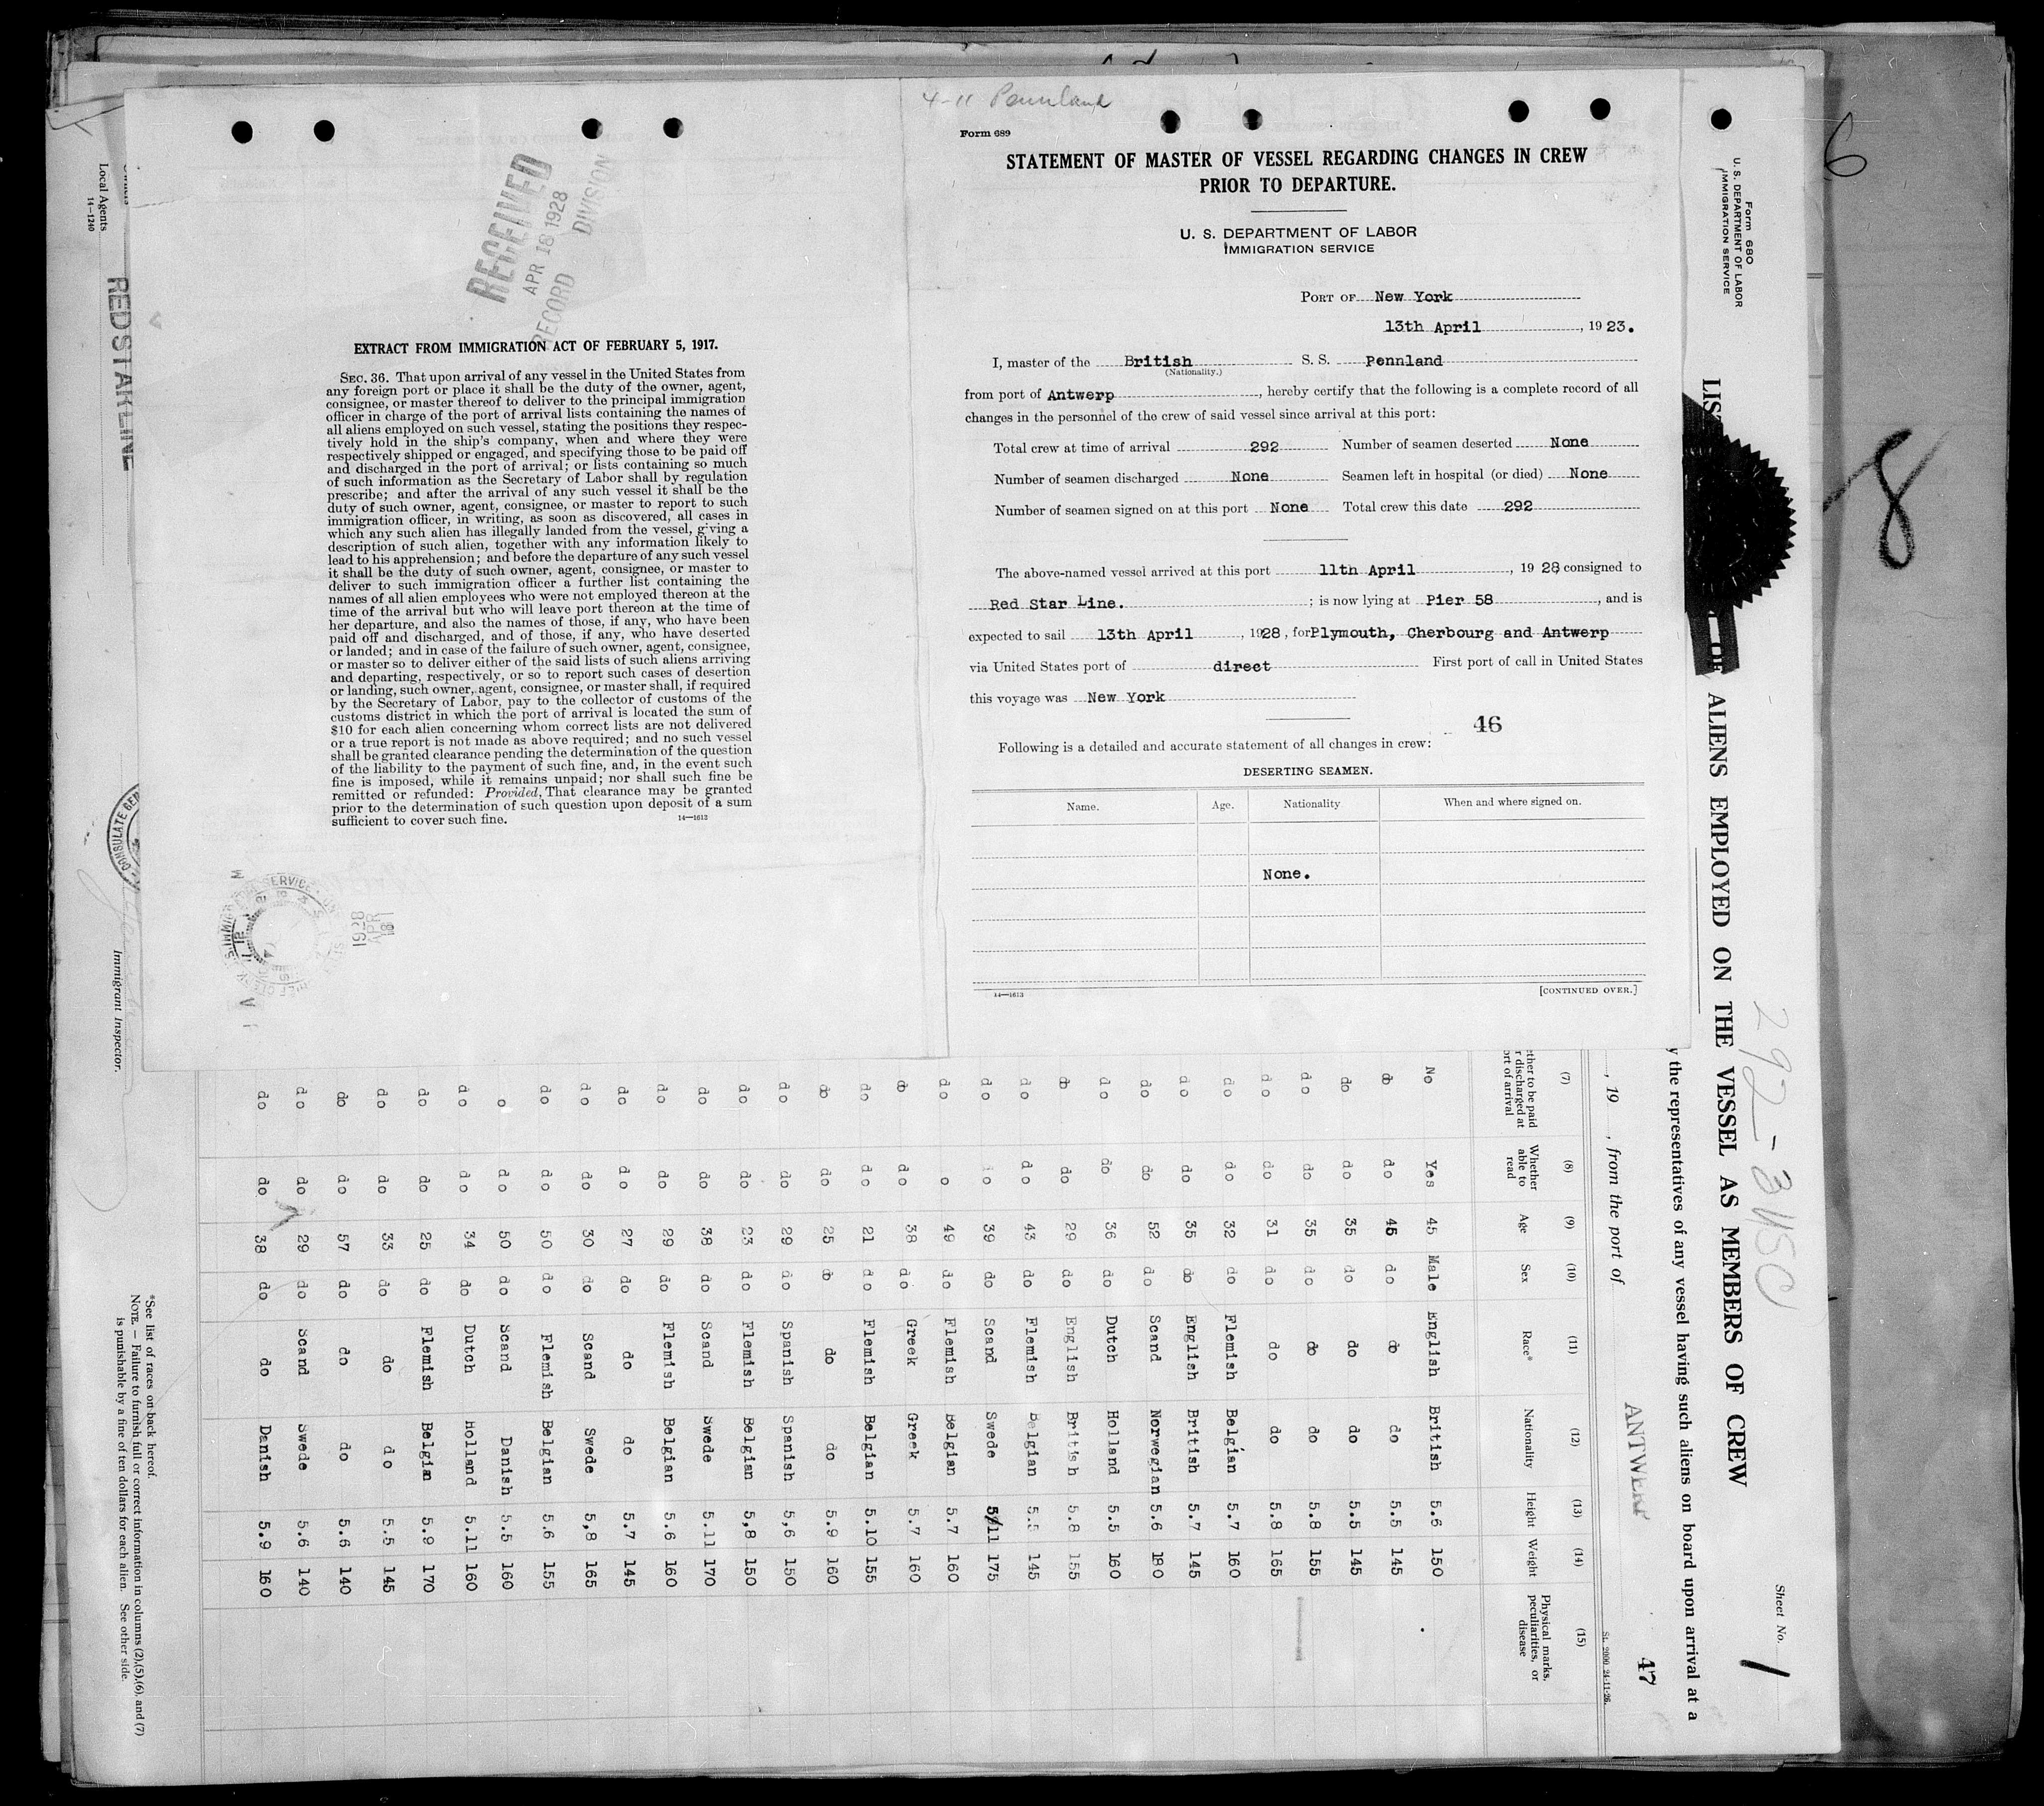 4-11 Pennland
RECEIVED
APR 18 1928
RECORD DIVISION
EXTRACT FROM IMMIGRATION ACT OF FEBRUARY 5, 1917.
SEC. 36. That upon arrival of any vessel in the United States from
any foreign port or place it shall be the duty of the owner, agent,
consignee, or master thereof to deliver to the principal immigration
officer in charge of the port of arrival lists containing the names of
all aliens employed on such vessel, stating the positions they respec-
tively hold in the ship's company, when and where they were
respectively shipped or engaged, and specifying those to be paid off
and discharged in the port of arrival; or lists containing so much
of such information as the Secretary of Labor shall by regulation
prescribe; and after the arrival of any such vessel it shall be the
duty of such owner, agent, consignee, or master to report to such
immigration officer, in writing, as soon as discovered, all cases in
which any such alien has illegally landed from the vessel, giving a
description of such alien, together with any information likely to
lead to his apprehension; and before the departure of any such vessel
it shall be the duty of such owner, agent, consignee, or master to
deliver to such immigration officer a further list containing the
names of all alien employees who were not employed thereon at the
time of the arrival but who will leave port thereon at the time of
her departure, and also the names of those, if any, who have been
paid off and discharged, and of those, if any, who have deserted
or landed; and in case of the failure of such owner, agent, consignee,
or master so to deliver either of the said lists of such aliens arriving
and departing, respectively, or so to report such cases of desertion
or landing, such owner, agent, consignee, or master shall, if required
by the Secretary of Labor, pay to the collector of customs of the
customs district in which the port of arrival is located the sum of
$10 for each alien concerning whom correct lists are not delivered
or a true report is not made as above required; and no such vessel
shall be granted clearance pending the determination of the question
of the liability to the payment of such fine, and, in the event such
fine is imposed, while it remains unpaid; nor shall such fine be
remitted or refunded: Provided, That clearance may be granted
prior to the determination of such question upon deposit of a sum
sufficient to cover such fine.
14—1613
APR 18 1928
Form 689
STATEMENT OF MASTER OF VESSEL REGARDING CHANGES IN CREW
PRIOR TO DEPARTURE.
U. S. DEPARTMENT OF LABOR
IMMIGRATION SERVICE
PORT OF New York
13th April, 1923.
I, master of the British S. S. Pennland
(Nationality.)
from port of Antwerp, hereby certify that the following is a complete record of all
changes in the personnel of the crew of said vessel since arrival at this port:
Total crew at time of arrival 292 Number of seamen deserted None
Number of seamen discharged None Seamen left in hospital (or died) None
Number of seamen signed on at this port None Total crew this date 292
The above-named vessel arrived at this port 11th April, 1928, consigned to
Red Star Line. ; is now lying at Pier 58, and is
expected to sail 13th April, 1928, for Plymouth, Cherbourg and Antwerp
via United States port of direct First port of call in United States
this voyage was New York
46
Following is a detailed and accurate statement of all changes in crew:
DESERTING SEAMEN.
Name. Age. Nationality When and where signed on.
None.
14—1613 [CONTINUED OVER.]
6
8
Form 680
U.S. DEPARTMENT OF LABOR
IMMIGRATION SERVICE
292-3 USC
Sheet No. 1
ALIENS EMPLOYED ON THE VESSEL AS MEMBERS OF CREW
the representatives of any vessel having such aliens on board upon arrival at a
, 19 , from the port of ANTWERP 47
St. 2000 24-11-26.
(7) (8) (9) (10) (11) (12) (13) (14) (15)
Whether able to read Age Sex Race* Nationality Height Weight Physical marks, peculiarities, or disease
No Yes 45 Male English British 5.6 150
do do 45 do do do 5.5 145
do do 35 do do do 5.5 145
do do 35 do do do 5.8 155
do do 31 do do do 5.8 165
do do 32 do Flemish Belgian 5.7 160
do do 35 do English British 5.7 145
do do 52 do Scand Norwegian 5.6 180
do do 36 do Dutch Holland 5.5 160
do do 29 do English British 5.8 155
do do 43 do Flemish Belgian 5.5 145
do do 39 do Scand Swede 5/11 175
do o 49 do Flemish Belgian 5.7 160
do do 38 do Greek Greek 5.7 160
do do 21 do Flemish Belgian 5.10 155
do do 25 do do do 5.9 160
do do 29 do Spanish Spanish 5,6 150
do do 23 do Flemish Belgian 5,8 150
do do 38 do Scand Swede 5.11 170
do do 29 do Flemish Belgian 5.6 160
do do 27 do do do 5.7 145
do do 30 do Scand Swede 5,8 165
do do 50 do Flemish Belgian 5.6 155
o do 50 do Scand Danish 5.5 160
do do 34 do Dutch Holland 5.11 160
do do 25 do Flemish Belgin 5.9 170
do do 33 do do do 5.5 145
do do 57 do do do 5.6 140
do do 29 do Scand Swede 5.6 140
do do 38 do do Danish 5.9 160
*See list of races on back hereof.
NOTE. — Failure to furnish full or correct information in columns (2),(5),(6), and (7)
is punishable by a fine of ten dollars for each alien. See other side.
Immigrant Inspector.
Local Agents
14—1240
RED STAR LINE